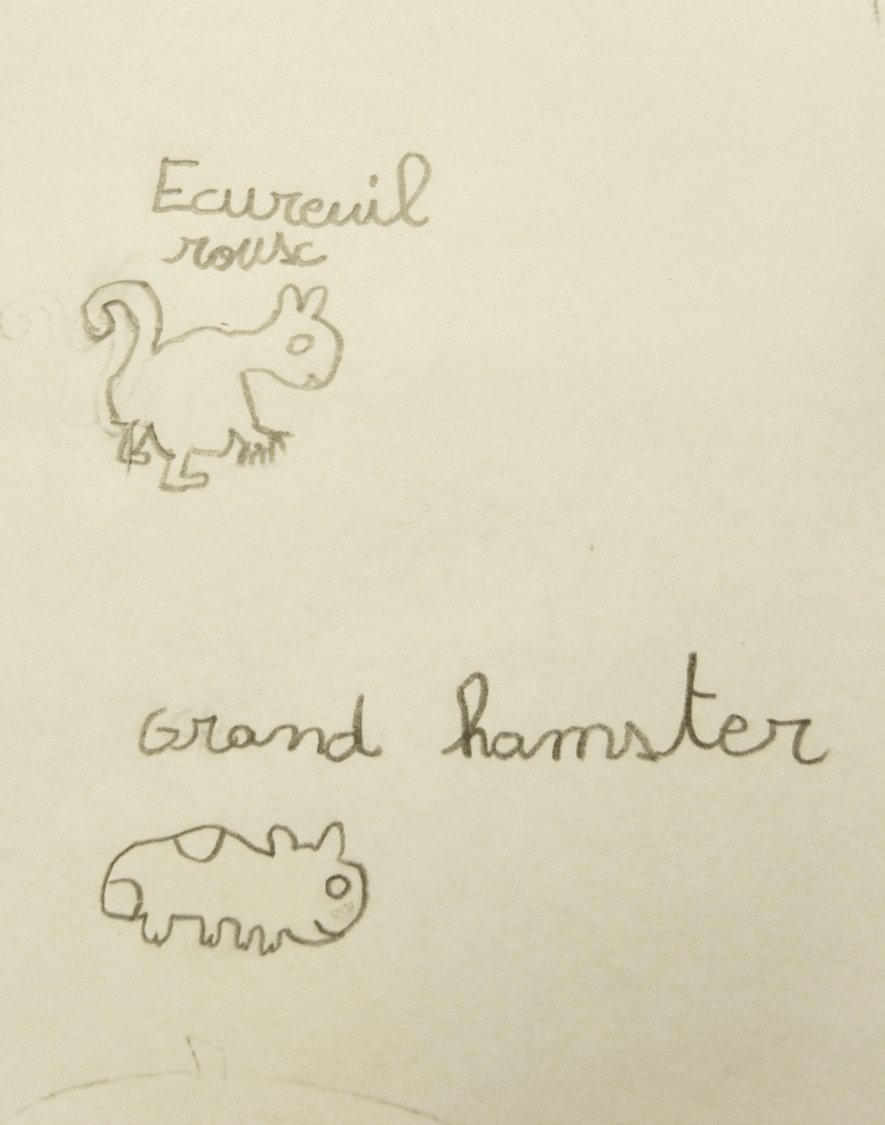 Ecureuil
roux
Grand hamster